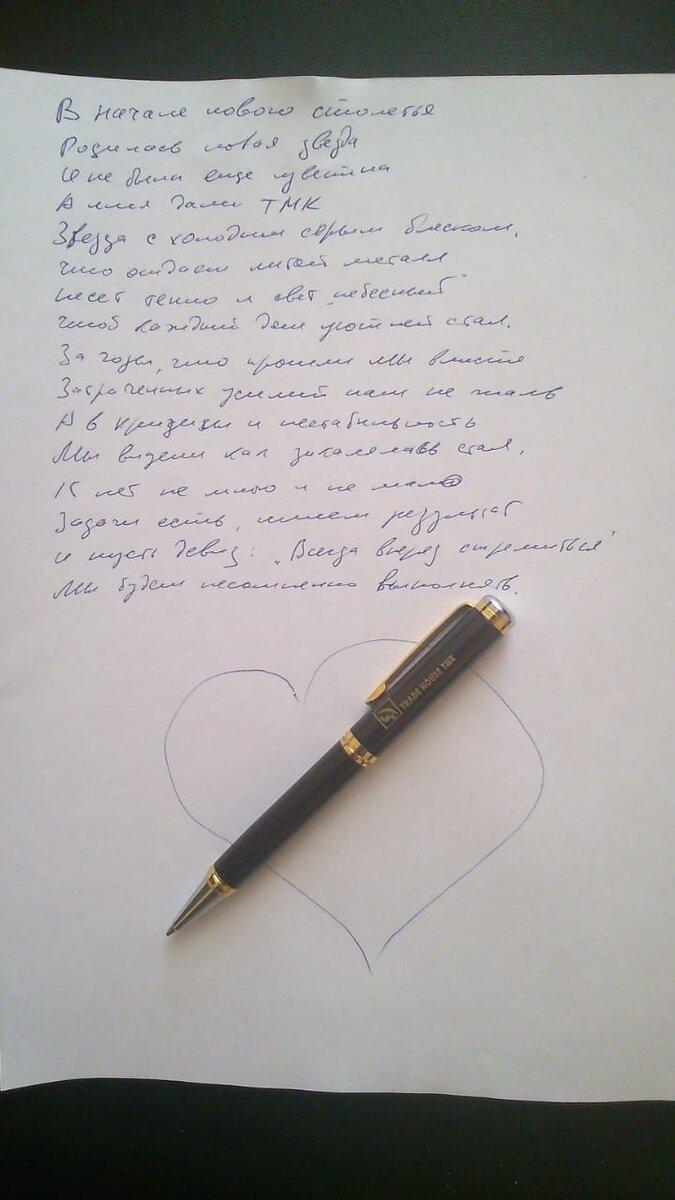 В начале нового столетья
Родилась новая звезда
И не была еще известна
А имя дали ТМК
Звезда с холодным серым блеском,
что отдает литой металл
несет тепло и свет "небесный"
чтоб каждый дом уютней стал.
За годы, что прошли мы вместе
Затраченных усилий нам не жаль
А в кризисы и нестабильность
Мы видели как закалялась стал,
15 лет не много и не мало
Задачи есть, имеем результат
и пусть девиз: "Всегда вперед стремиться"
Мы будем несомненно выполнять.
TRADE HOUSE TMK